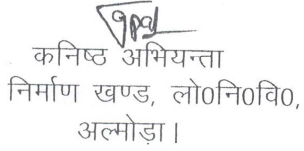 कनिष्ठ अभियन्ता
निर्माण खण्ड, लो0नि0वि0,
अल्मोड़ा।